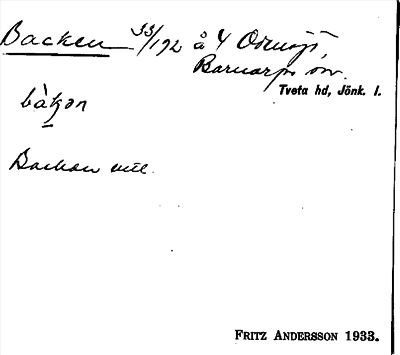 Backen 33/192 å 4 Odensjö,
Barnarps sn.
Tveta hd, Jönk. l.
bàkən
Backen
FRITZ ANDERSSON 1933.